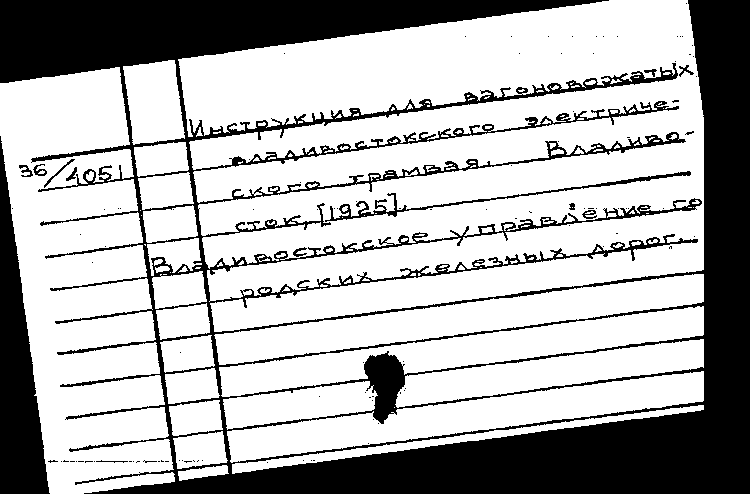 Инструкция для вагоновожатых
владивостокского электриче-
36/4051
ского трамвая. Владиво-
сток, [1925].
Владивостокское управление го
родских железных дорог.